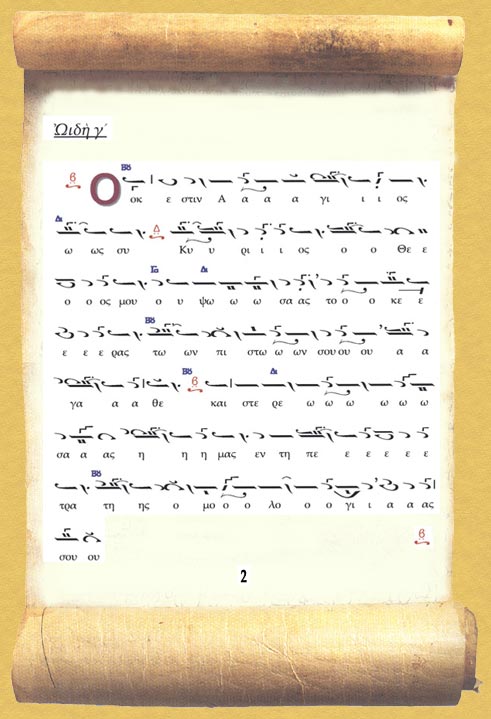 Ὠιδὴ γ΄
β Βου Ο οκ ε στιν Α α α α γι ι ι ος
Δι ω ως συ Δ Κυ υ ρι ι ι ος ο ο Θε ε
ο ο ος μου Γα ο υ ψω Δι ω ω σα ας το ο ο κε ε
ε ε ε ρας Βου τω ων πι στω ω ων σου ου ου α α
γα α α θε Βου β και στε ρε Δι ω ω ω ω ω ω
σα α ας η η η μας εν τη πε ε ε ε ε ε
τρα Βου τη ης ο μο ο ο λο ο ο γι ι α α ας
σου ου β
2